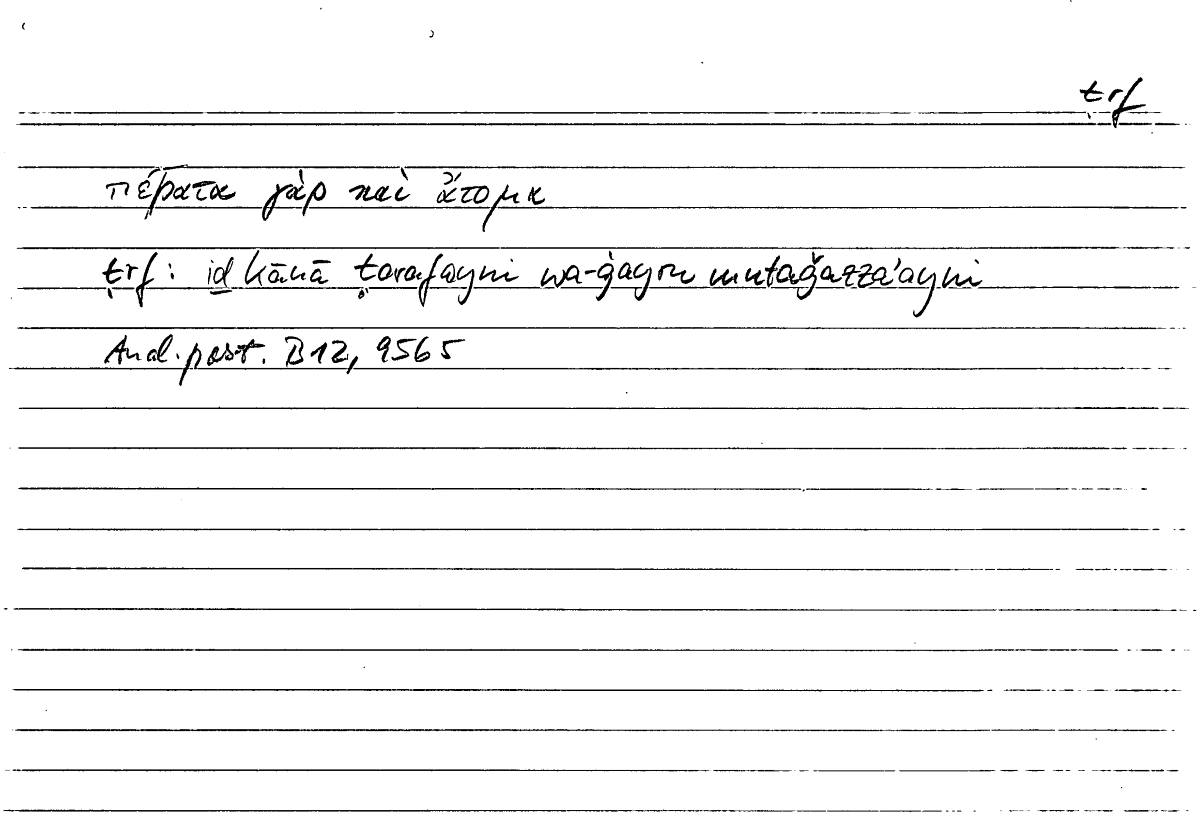 ṭrf
πέρατα γὰρ καὶ ἄτομα
ṭrf: iḏ kānā ṭarafayni wa-ġayra mutaǧazzi'ayni
Anal. post. B12, 95b5